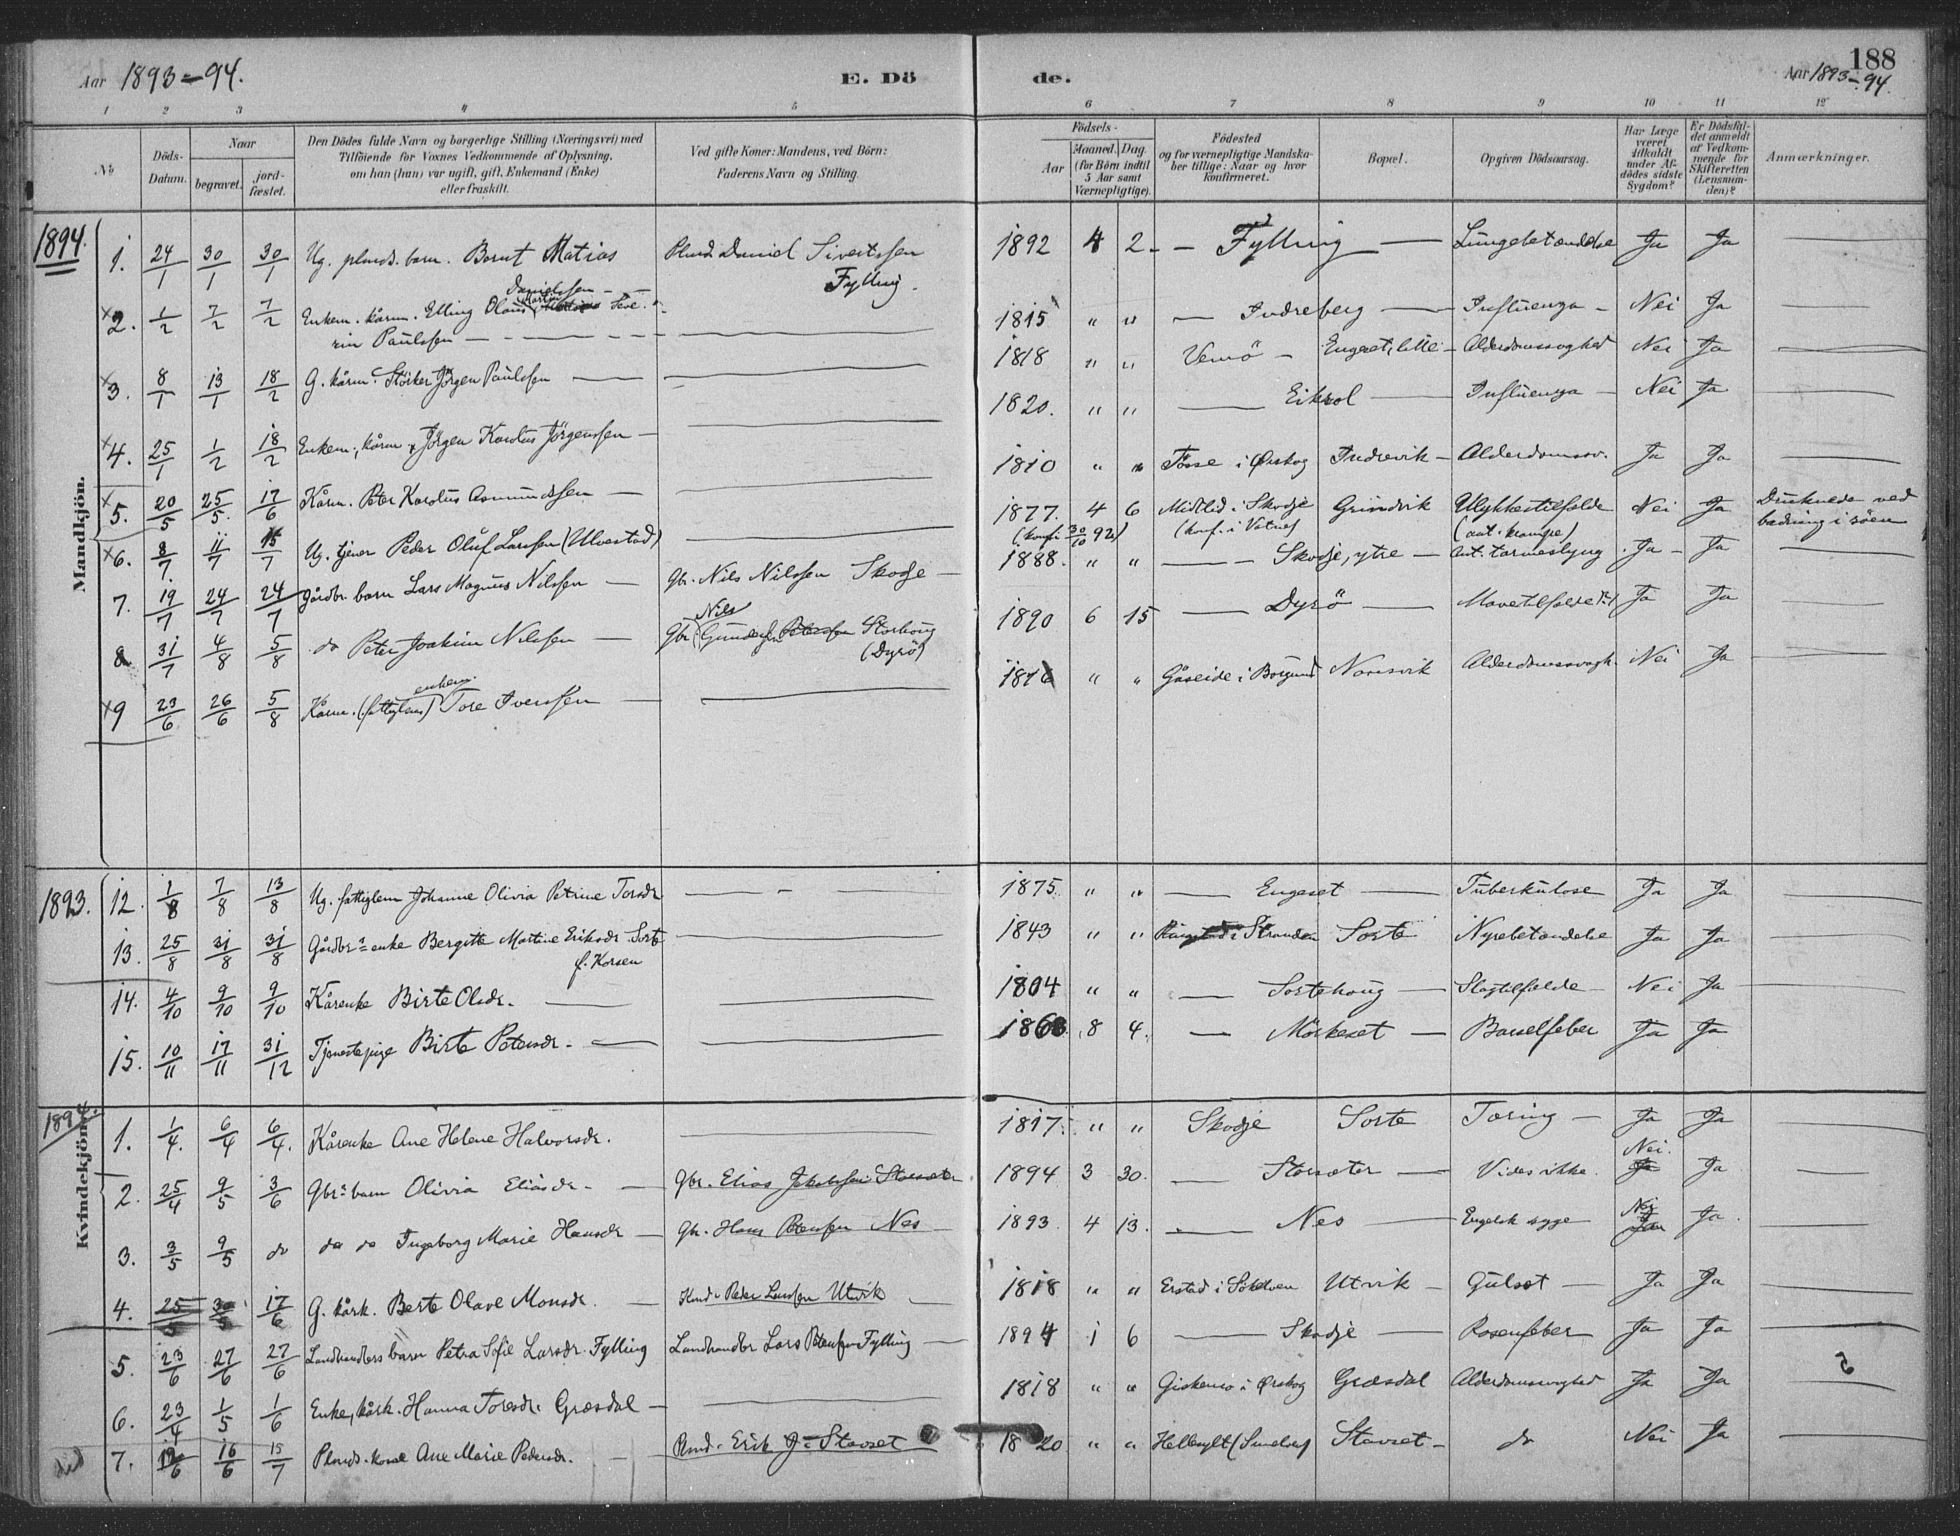 Aar 1893-94.
E. Dö
de.
188
Aar 1893-94.
1 2 3 4 5 6 7 8 9 10 11 12
No
Döds-Datum.
Naar
begravet.
jord-fæstet.
Den Dödes fulde Navn og borgerlige Stilling (Næringsvei) med
Tilföiende for Voxnes Vedkommende af Oplysning,
om han (hun) var ugift, gift, Enkemand (Enke)
eller fraskilt.
Ved gifte Koner: Mandens, ved Börn:
Faderens Navn og Stilling.
Födsels-
Aar
Maaned. Dag.
(for Börn indtil
5 Aar samt
Værnepligtige).
Födested
og for værnepligtige Mandska-
ber tillige: Naar og hvor
konfirmeret.
Bopæl.
Opgiven Dödsaarsag.
Har Læge
været
tilkaldt
under Af-
dödes sidste
Sygdom?
Er Dödsfal-
det anmeldt
af Vedkom-
mende for
Skifteretten
(Lensman-
den)?
Anmærkninger.
1894.
Mandkjön.
1. 24/1 30/1 30/1 Ug. plmds. barn. Bernt Matias Danielssen Plmd. Daniel Sivertssen Fylling. 1892 4 2 Fylling Lungebetændelse Ja Ja
x2. 1/2 7/2 7/2 Enkem. kårm. Elling Olaus Martin Seve-
rin Paulssen 1815 " " Indreberg Influenza Nei Ja
x3. 8/1 13/1 18/2 G. kårm. Störker Jörgen Paulssen 1818 " " Vemö Engeset, lille Alderdomssvaghed Nei Ja
x4. 25/1 1/2 18/2 Enkem., kårm. Jörgen Karolus Jörgenssen 1820. " " Eikrol Influenza Nei Ja
x5. 20/5 25/5. 17/6 Kårm. Peter Karolus Asmundssen 1810 " " Fosse i Ørskog Indrevik Alderdomssv. Ja Ja
x6. 8/7. 11/7 15/7 Ug. tjener Peder Oluf Larssen (Ulvestad) 1877. 4 6 Midtlid i Skodje Grindvik Ulykkestilfælde Nei Ja Druknede ved
(konf. 30/10 92) (konf. i Vatne) (ant. krampe) badning i söen
7. 19/7 24/7 24/7 Gårdbr. barn Lars Magnus Nilssen Gbr. Nils Nilssen Skodje 1888. " " Skodje, ytre Ant. tarmeslyng Ja Ja
8 31/7 4/8 5/8 do Peter Joakim Nilssen Gbr. Nils Gunderssen Peterssen Storhoug
(Dyrö) 1890 6 15 Dyrö Mavetilfælde Ja Ja
x9 23/6 26/6 5/8 Kårm. (fattiglem) enkem. Tore Iverssen 1816 " " Gåseide i Borgund Normsvik Alderdomssvagh. Nei Ja
1893.
12. 1/8 7/8 13/8 Ug. fattiglem Johanne Olivia Petrine Torsdr 1875. " " Engeset Tuberkulose Ja Ja
13. 25/8 31/8 31/8 Gårdbrs enke Bergitte Martine Eriksdr. Sorte
f. Korsen 1843 " " Ringstad i Stranden Sorte Nyrebetændelse Ja Ja
14. 4/10 9/10 9/10 Kårenke Birte Olsdr. 1804 " " Sortehoug Slagtilfælde Nei Ja
15. 10/11 17/11 31/12 Tjenestepige Birte Petersdr. 1868. 8 4. Mörkeset Barselfeber Ja Ja
1894.
Kvindekjön.
1. 1/4. 6/4 6/4. Kårenke Ane Helene Halvorsdr. 1817. " " Skodje Sorte Tæring Ja Ja
2. 25/4 9/5 3/6 Gbrs barn Olivia Eliasdr. Gbr. Elias Jakobssen Storsæter 1894 3 30. Storsæter Vides ikke. Nei. Ja Ja
3. 3/5 9/5 do do do Ingeborg Marie Hansdr Gbr. Hans Peterssen Nes 1893. 4 13. Nes Engelsk syge Nei Ja.
4. 25/5 30/5 17/6 G. kårk. Berte Olave Monsdr. Kmd. Peder Larssen Utvik 1818 " " Erstad i Sökelven Utvik Gulsot Ja Ja
5. 23/6 27/6 27/6 Landhandlers barn Petra Sofie Larsdr. Fylling Landhandler Lars Peterssen Fylling 1894 1 6 Skodje Rosenfeber Ja Ja
6. 23/4 1/5 1/6 Enke, kårk. Hanna Toresdr. Græsdal 1818 " " Giskemo i Ørskog Græsdal Alderdomssvaghed Ja Ja
7. 12/6 16/6 15/7 Plmds. kone Ane Marie Pedersdr. Plmd. Erik J. Stavset 1820 " " Hellesylt (Sunelven) Stavset do Nei Ja